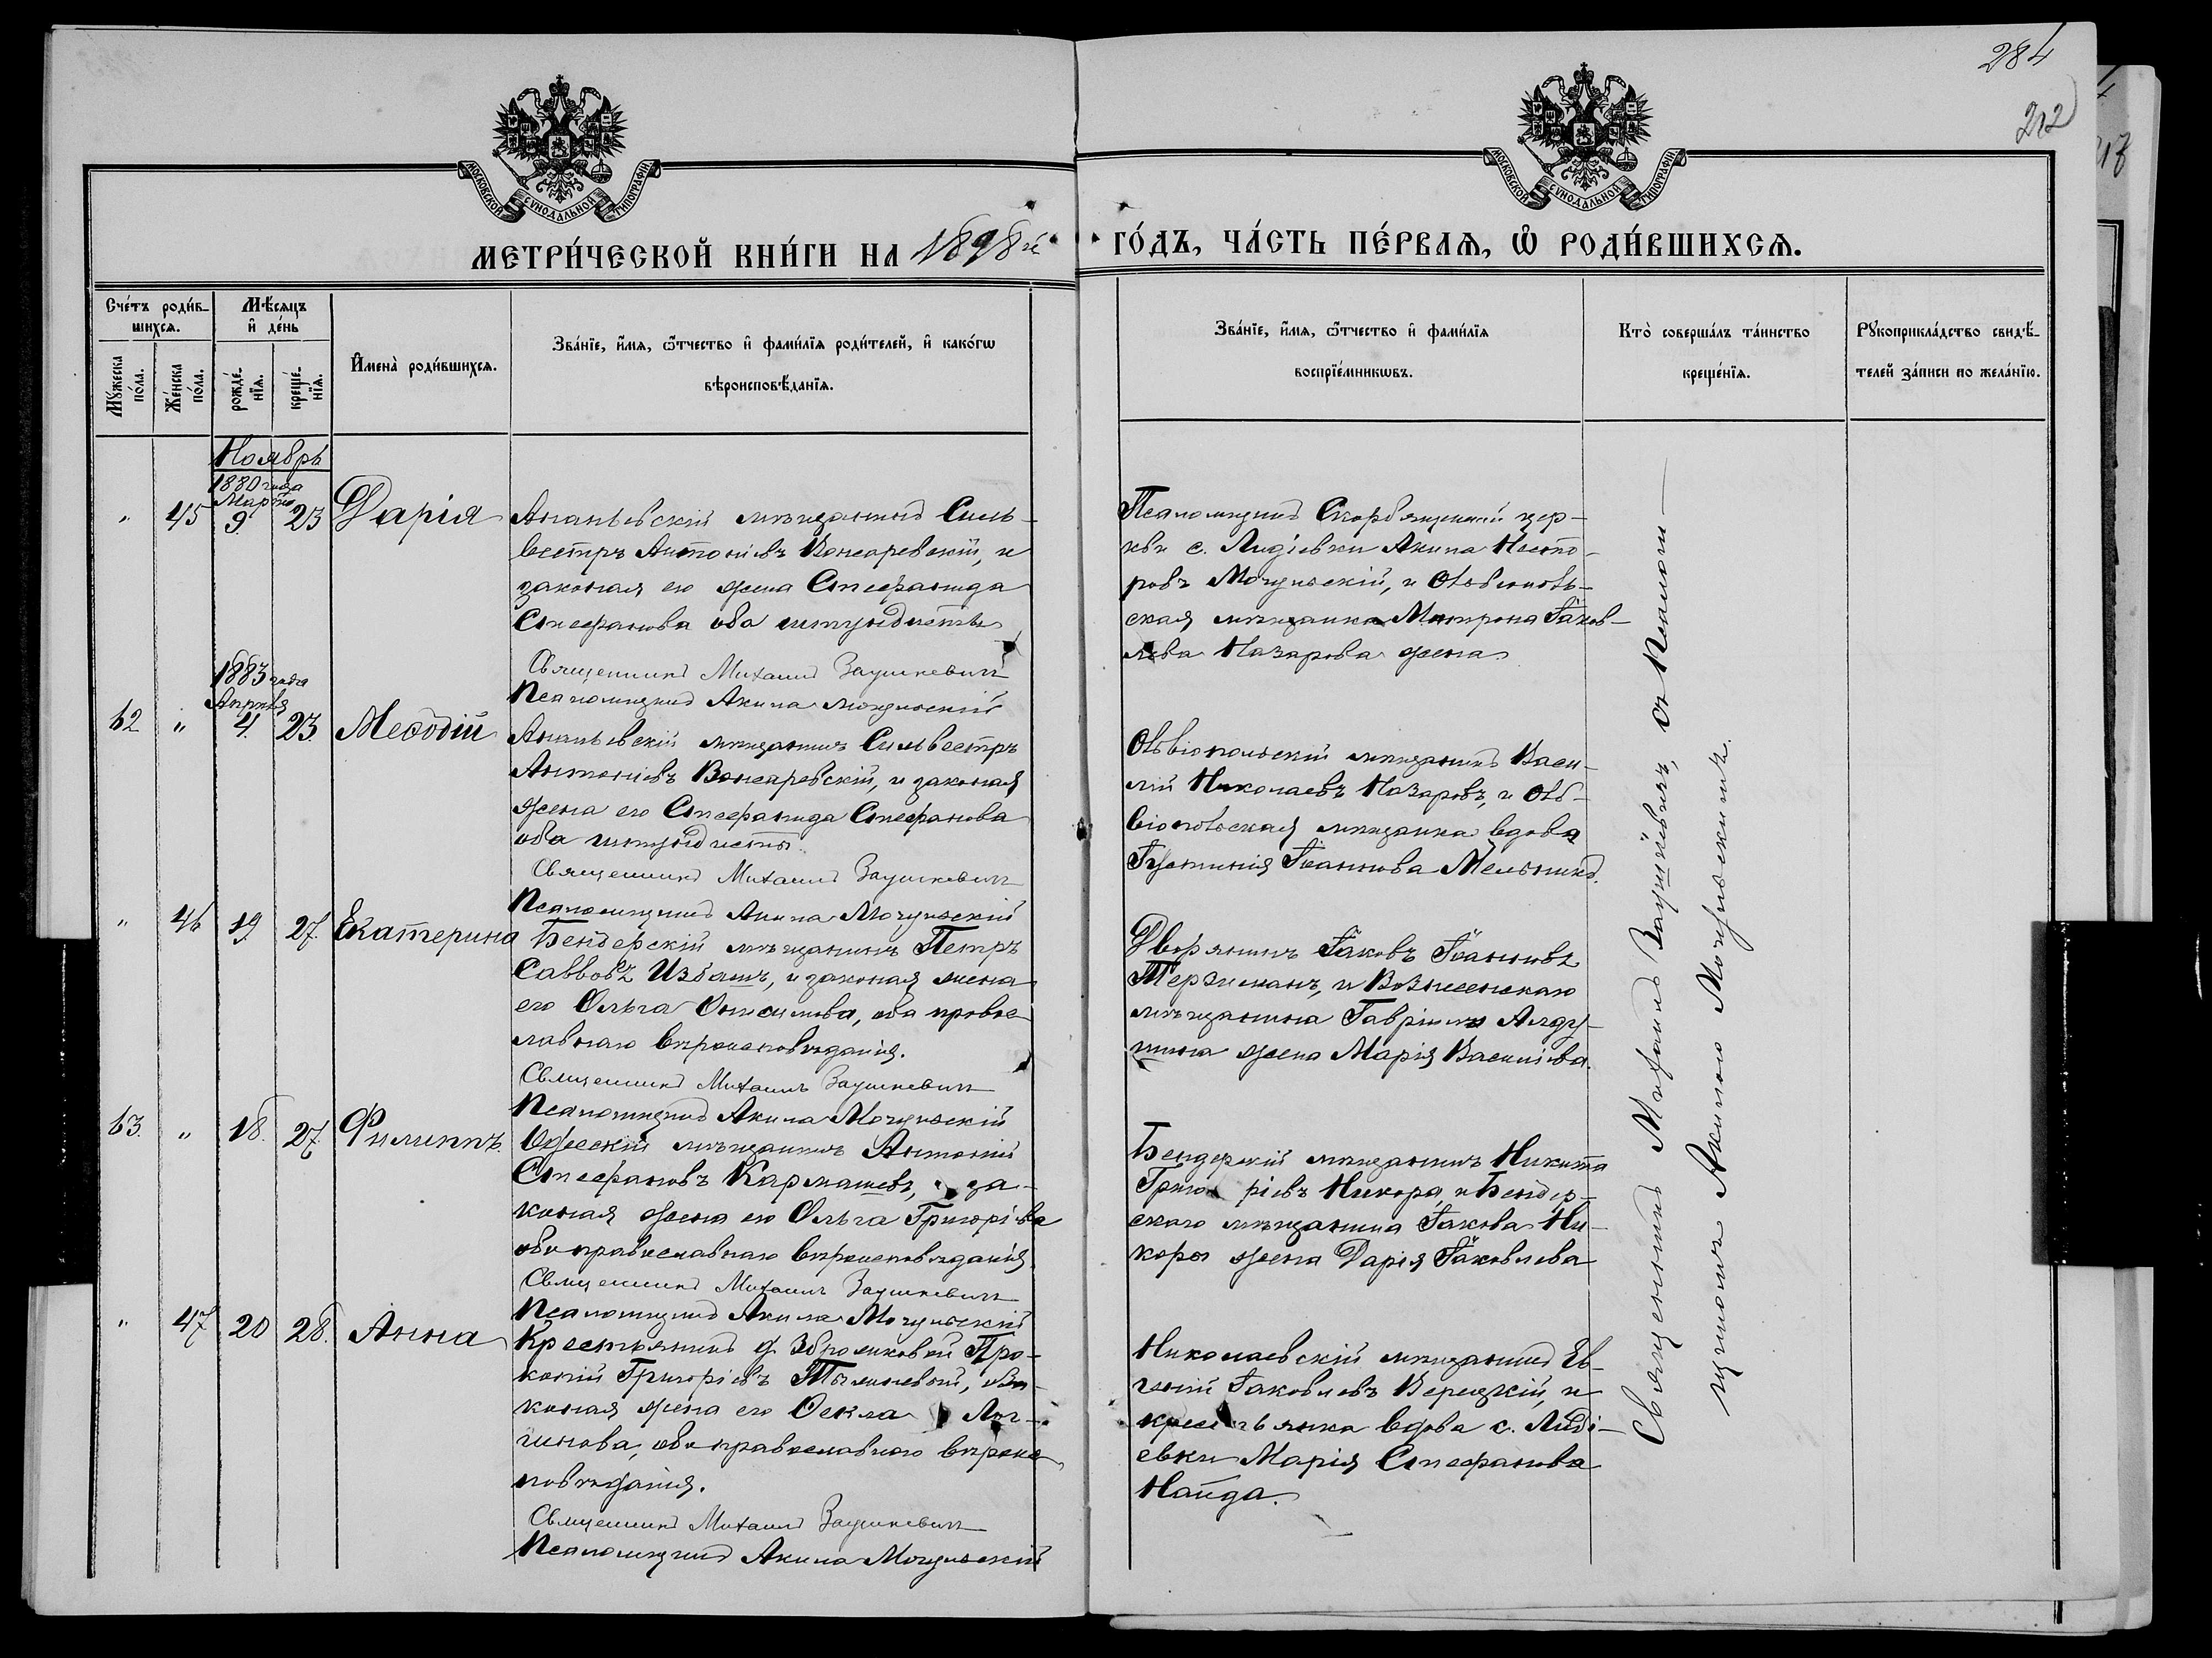 284
212
МОСКОВСКОЙ СѴНОДАЛЬНОЙ ТИПОГРАФІИ
МОСКОВСКОЙ СѴНОДАЛЬНОЙ ТИПОГРАФІИ
МЕТРИ́ЧЕСКОЙ КНИ́ГИ НА 1898й
ГО́ДЪ, ЧА́СТЬ ПЕ́РВАѦ, Ѡ҆ РОДИ́ВШИХСѦ.
Сче́тъ роди́в-
шихсѧ.
Мꙋ́жеска по́ла.
Же́нска по́ла.
Мѣ́сѧцъ и҆ де́нь
рожде́-нїѧ.
креще́-нїѧ.
И҆мена̀ роди́вшихсѧ.
Зва́нїе, и҆́мѧ, ѻ҆́тчество и҆ фами́лїѧ роди́телей, и҆ како́гѡ
вѣроисповѣ́данїѧ.
Зва́нїе, и҆́мѧ, ѻ҆́тчество и҆ фами́лїѧ
воспрїе́мникѡвъ.
Кто̀ соверша́лъ та́инство
креще́нїѧ.
Рꙋкоприкла́дство свидѣ́-
телей за́писи по жела́нїю.
Ноябрь
1880 года
Марта
" 45 9. 23 Дарія
Ананьевскій мѣщанинъ Силь-
вестръ Антоніевъ Вонсаревскій, и
законая его жена Стефанида
Стефанова оба штундисты
Священникъ Михаилъ Заушкевичъ
Псаломщикъ Акила Мочульскій
Псаломщикъ Скорбященской цер-
кви с. Лидіевки Акила Несто-
ровъ Мочульскій, и Ольвіополь-
ская мѣщанка Матрона Іаков-
лева Назарова жена
1883 года
Апрѣля
62 " 4. 23. Меѳодій
Ананьевскій мѣщанинъ Сильвестръ
Антоніевъ Вонсаревскій, и законая
жена его Стефанида Стефанова
оба штундисты.
Священникъ Михаилъ Заушкевичъ
Псаломщикъ Акила Мочульскій
Ольвіопольскій мѣщанинъ Васи-
лій Николаевъ Назаровъ, и Оль-
віопольская мѣщанка вдова
Іустинія Іоаннова Мельникъ.
" 46 19. 27. Екатерина
Бендерскій мѣщанинъ Петръ
Саввовъ Избашъ, и законая жена
его Ольга Онисимова, оба право-
славнаго вѣроисповѣданія.
Священникъ Михаилъ Заушкевичъ
Псаломщикъ Акила Мочульскій
Дворянинъ Іаковъ Іоанновъ
Терзиманъ, и Вознесенскаго
мѣщанина Гавріила
жена Марія Василіева.
63. " 18. 27. Филиппъ.
Одесскій мѣщанинъ Антоній
Стефановъ Кармашевъ, и за-
коная жена его Ольга Григоріева
оба православнаго вѣроисповѣданія
Священникъ Михаилъ Заушкевичъ
Псаломщикъ Акила Мочульскій
Бендерскій мѣщанинъ Никита
Григоріевъ Никора, и Бендер-
скаго мѣщанина Іакова Ни-
коры жена Дарія Іаковлева
" 47 20 28. Анна
Крестьянинъ Про-
копій Григоріевъ
коная жена его Ѳекла Лон-
гинова, оба православнаго вѣроис-
повѣданія.
Священникъ Михаилъ Заушкевичъ
Псаломщикъ Акила Мочульскій
Николаевскій мѣщанинъ Ев-
геній Іаковлевъ Верецкій, и
крестьянка вдова с. Лиді-
евки Марія Стефанова
Найда.
Священникъ Михаилъ Заушкевичъ, съ Псалом-
щикомъ Акилою Мочульскимъ.